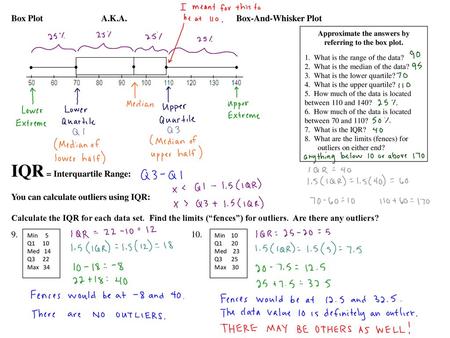 Box Plot A.K.A. Box-And-Whisker Plot
I meant for this to
be at 110.
25% 25% 25% 25%
50 60 70 80 90 100 110 120 130 140
Lower
Extreme
Lower
Quartile
Q1
(Median of
lower half)
Median
Upper
Quartile
Q3
(Median of
upper half)
Upper
Extreme
Approximate the answers by
referring to the box plot.
1. What is the range of the data? 90
2. What is the median of the data? 95
3. What is the lower quartile? 70
4. What is the upper quartile? 110
5. How much of the data is located
between 110 and 140? 25%
6. How much of the data is located
between 70 and 110? 50%
7. What is the IQR? 40
8. What are the limits (fences) for
outliers on either end?
anything below 10 or above 170
IQR = 40
1.5(IQR) = 1.5(40) = 60
70-60=10 110+60=170
IQR = Interquartile Range: Q3-Q1
You can calculate outliers using IQR:
x < Q1 - 1.5(IQR)
x > Q3 + 1.5(IQR)
Calculate the IQR for each data set. Find the limits ("fences") for outliers. Are there any outliers?
9.
Min 5
Q1 10
Med 14
Q3 22
Max 34
IQR = 22-10 = 12
1.5(IQR) = 1.5(12) = 18
10-18 = -8
22+18 = 40
Fences would be at -8 and 40.
There are NO OUTLIERS.
10.
Min 10
Q1 20
Med 23
Q3 25
Max 30
IQR = 25-20 = 5
1.5(IQR) = 1.5(5) = 7.5
20-7.5 = 12.5
25+7.5 = 32.5
Fences would be at 12.5 and 32.5.
The data value 10 is definitely an outlier.
THERE MAY BE OTHERS AS WELL!